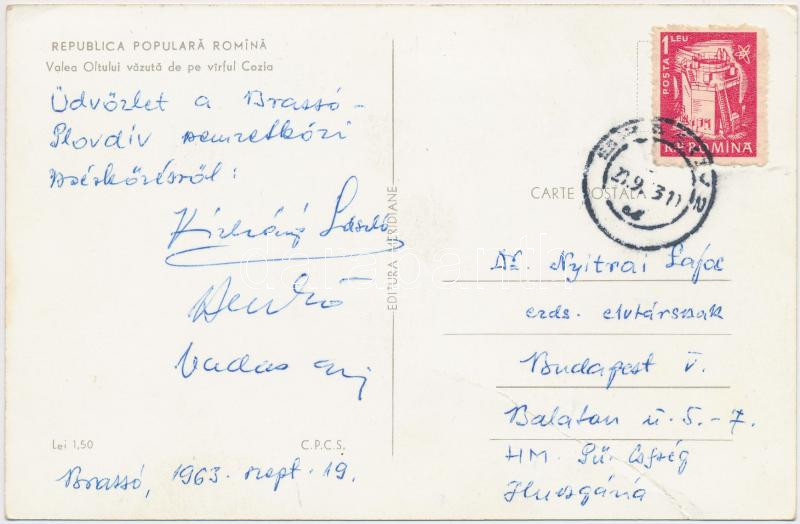 REPUBLICA POPULARĂ ROMÎNĂ
Valea Oltului văzută de pe vîrful Cozia
Üdvözlet a Brassó-
Plovdiv nemzetközi
mérkőzésről:
László
Vadas
Lei 1,50
C.P.C.S.
Brassó, 1963. szept. 19.
EDITURA MERIDIANE
POSTA 1 LEU
R.P. ROMINA
CARTE POSTALA
Dr. Nyitrai Lajos
erds. elvtársnak
Budapest V.
Balaton u. 5.-7.
HM. Pü. Csfség
Hungária